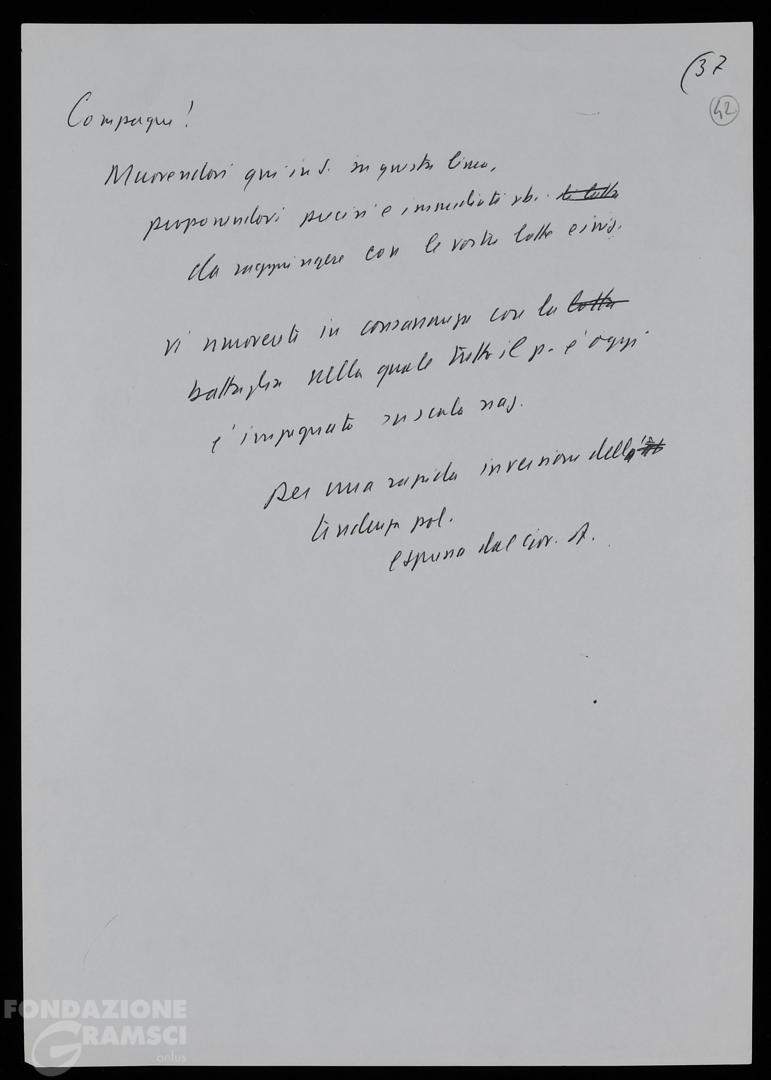 (37
42
Compagni!
Muovendovi qui in S. in questa linea,
proponendovi precisi e immediati ob. di lotta
da raggiungere con le vostre lotte e iniz.
vi muovete in consonanza con la lotta
battaglia nella quale tutto il p. è oggi
è impegnato su scala naz.
per una rapida inversione della
tendenza pol.
espressa dal Gov. A.
FONDAZIONE
GRAMSCI
onlus